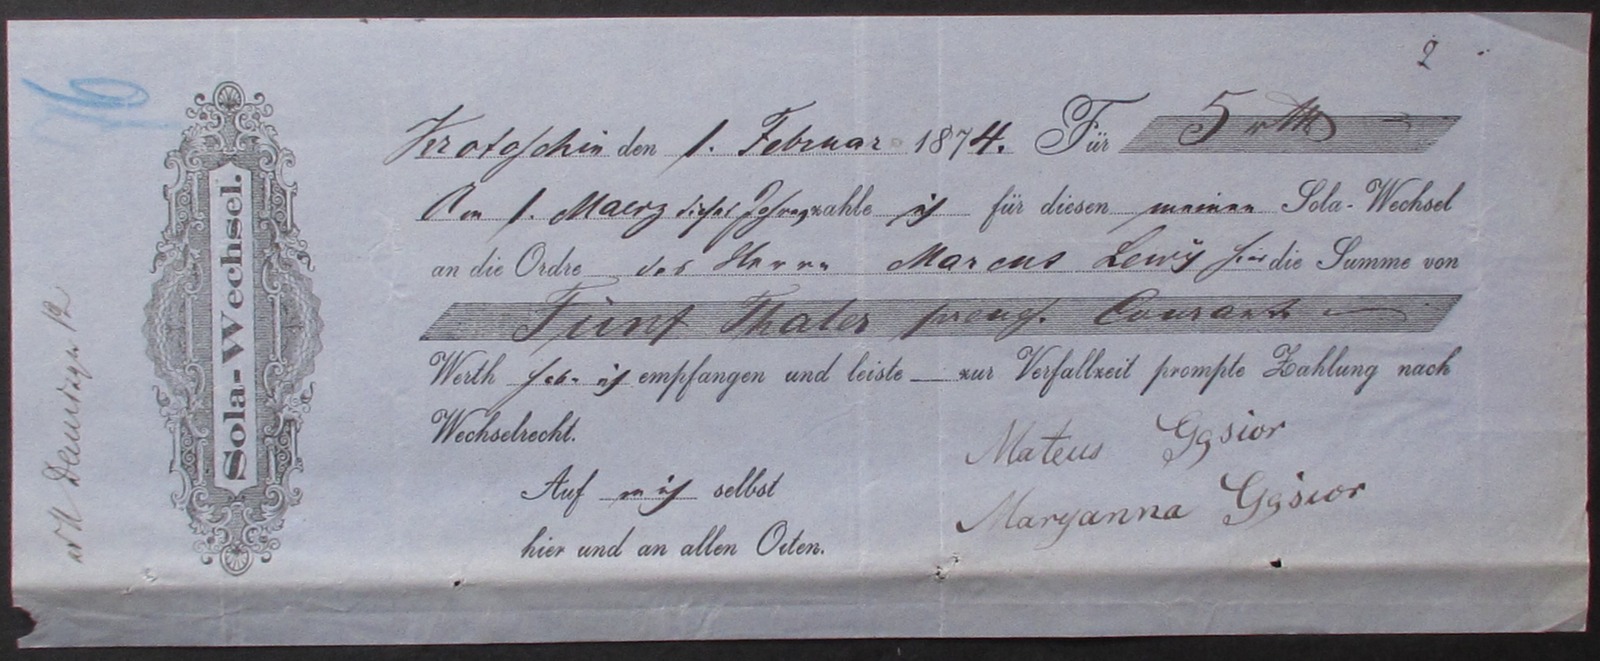 2
Krotoschin den 1. Februar 1874. Für 5 rth
Am 1. Maerz dieses Jahres zahle ich für diesen meinen Sola-Wechsel
an die Ordre des Herrn Marcus Lewÿ hier die Summe von
Fünf Thaler preuß. Courant
Werth hab ich empfangen und leiste zur Verfallzeit prompte Zahlung nach
Wechselrecht.
Mateus Gąsior
Auf mich selbst
Maryanna Gąsior
hier und an allen Orten.
Sola-Wechsel.